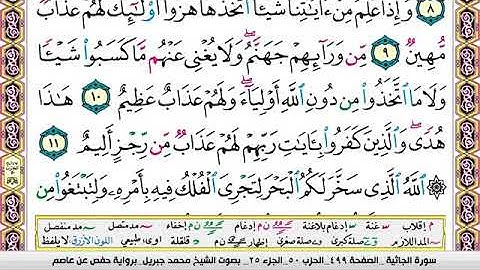 وَإِذَا عَلِمَ مِنْ ءَايَٰتِنَا شَيْـًٔا ٱتَّخَذَهَا هُزُوًا ۚ أُو۟لَٰٓئِكَ لَهُمْ عَذَابٌ
مُّهِينٌ ٩ مِّن وَرَآئِهِمْ جَهَنَّمُ ۖ وَلَا يُغْنِى عَنْهُم مَّا كَسَبُوا۟ شَيْـًٔا
وَلَا مَا ٱتَّخَذُوا۟ مِن دُونِ ٱللَّهِ أَوْلِيَآءَ ۖ وَلَهُمْ عَذَابٌ عَظِيمٌ ١٠ هَٰذَا
هُدًى ۖ وَٱلَّذِينَ كَفَرُوا۟ بِـَٔايَٰتِ رَبِّهِمْ لَهُمْ عَذَابٌ مِّن رِّجْزٍ أَلِيمٌ ١١
۞ ٱللَّهُ ٱلَّذِى سَخَّرَ لَكُمُ ٱلْبَحْرَ لِتَجْرِىَ ٱلْفُلْكُ فِيهِ بِأَمْرِهِۦ وَلِتَبْتَغُوا۟ مِن
م إقلاب س غنة إدغام بلاغنة ن م إدغام ن م إخفاء مد متصل مد منفصل
المد اللازم صلة كبرى صلة صغرى إظهار ن م قلقلة ا و ى طبيعي اللون الأزرق لا يلفظ
سورة الجاثية .. الصفحة ٤٩٩ .. الحزب ٥٠ .. الجزء ٢٥ .. بصوت الشيخ محمد جبريل .. برواية حفص عن عاصم